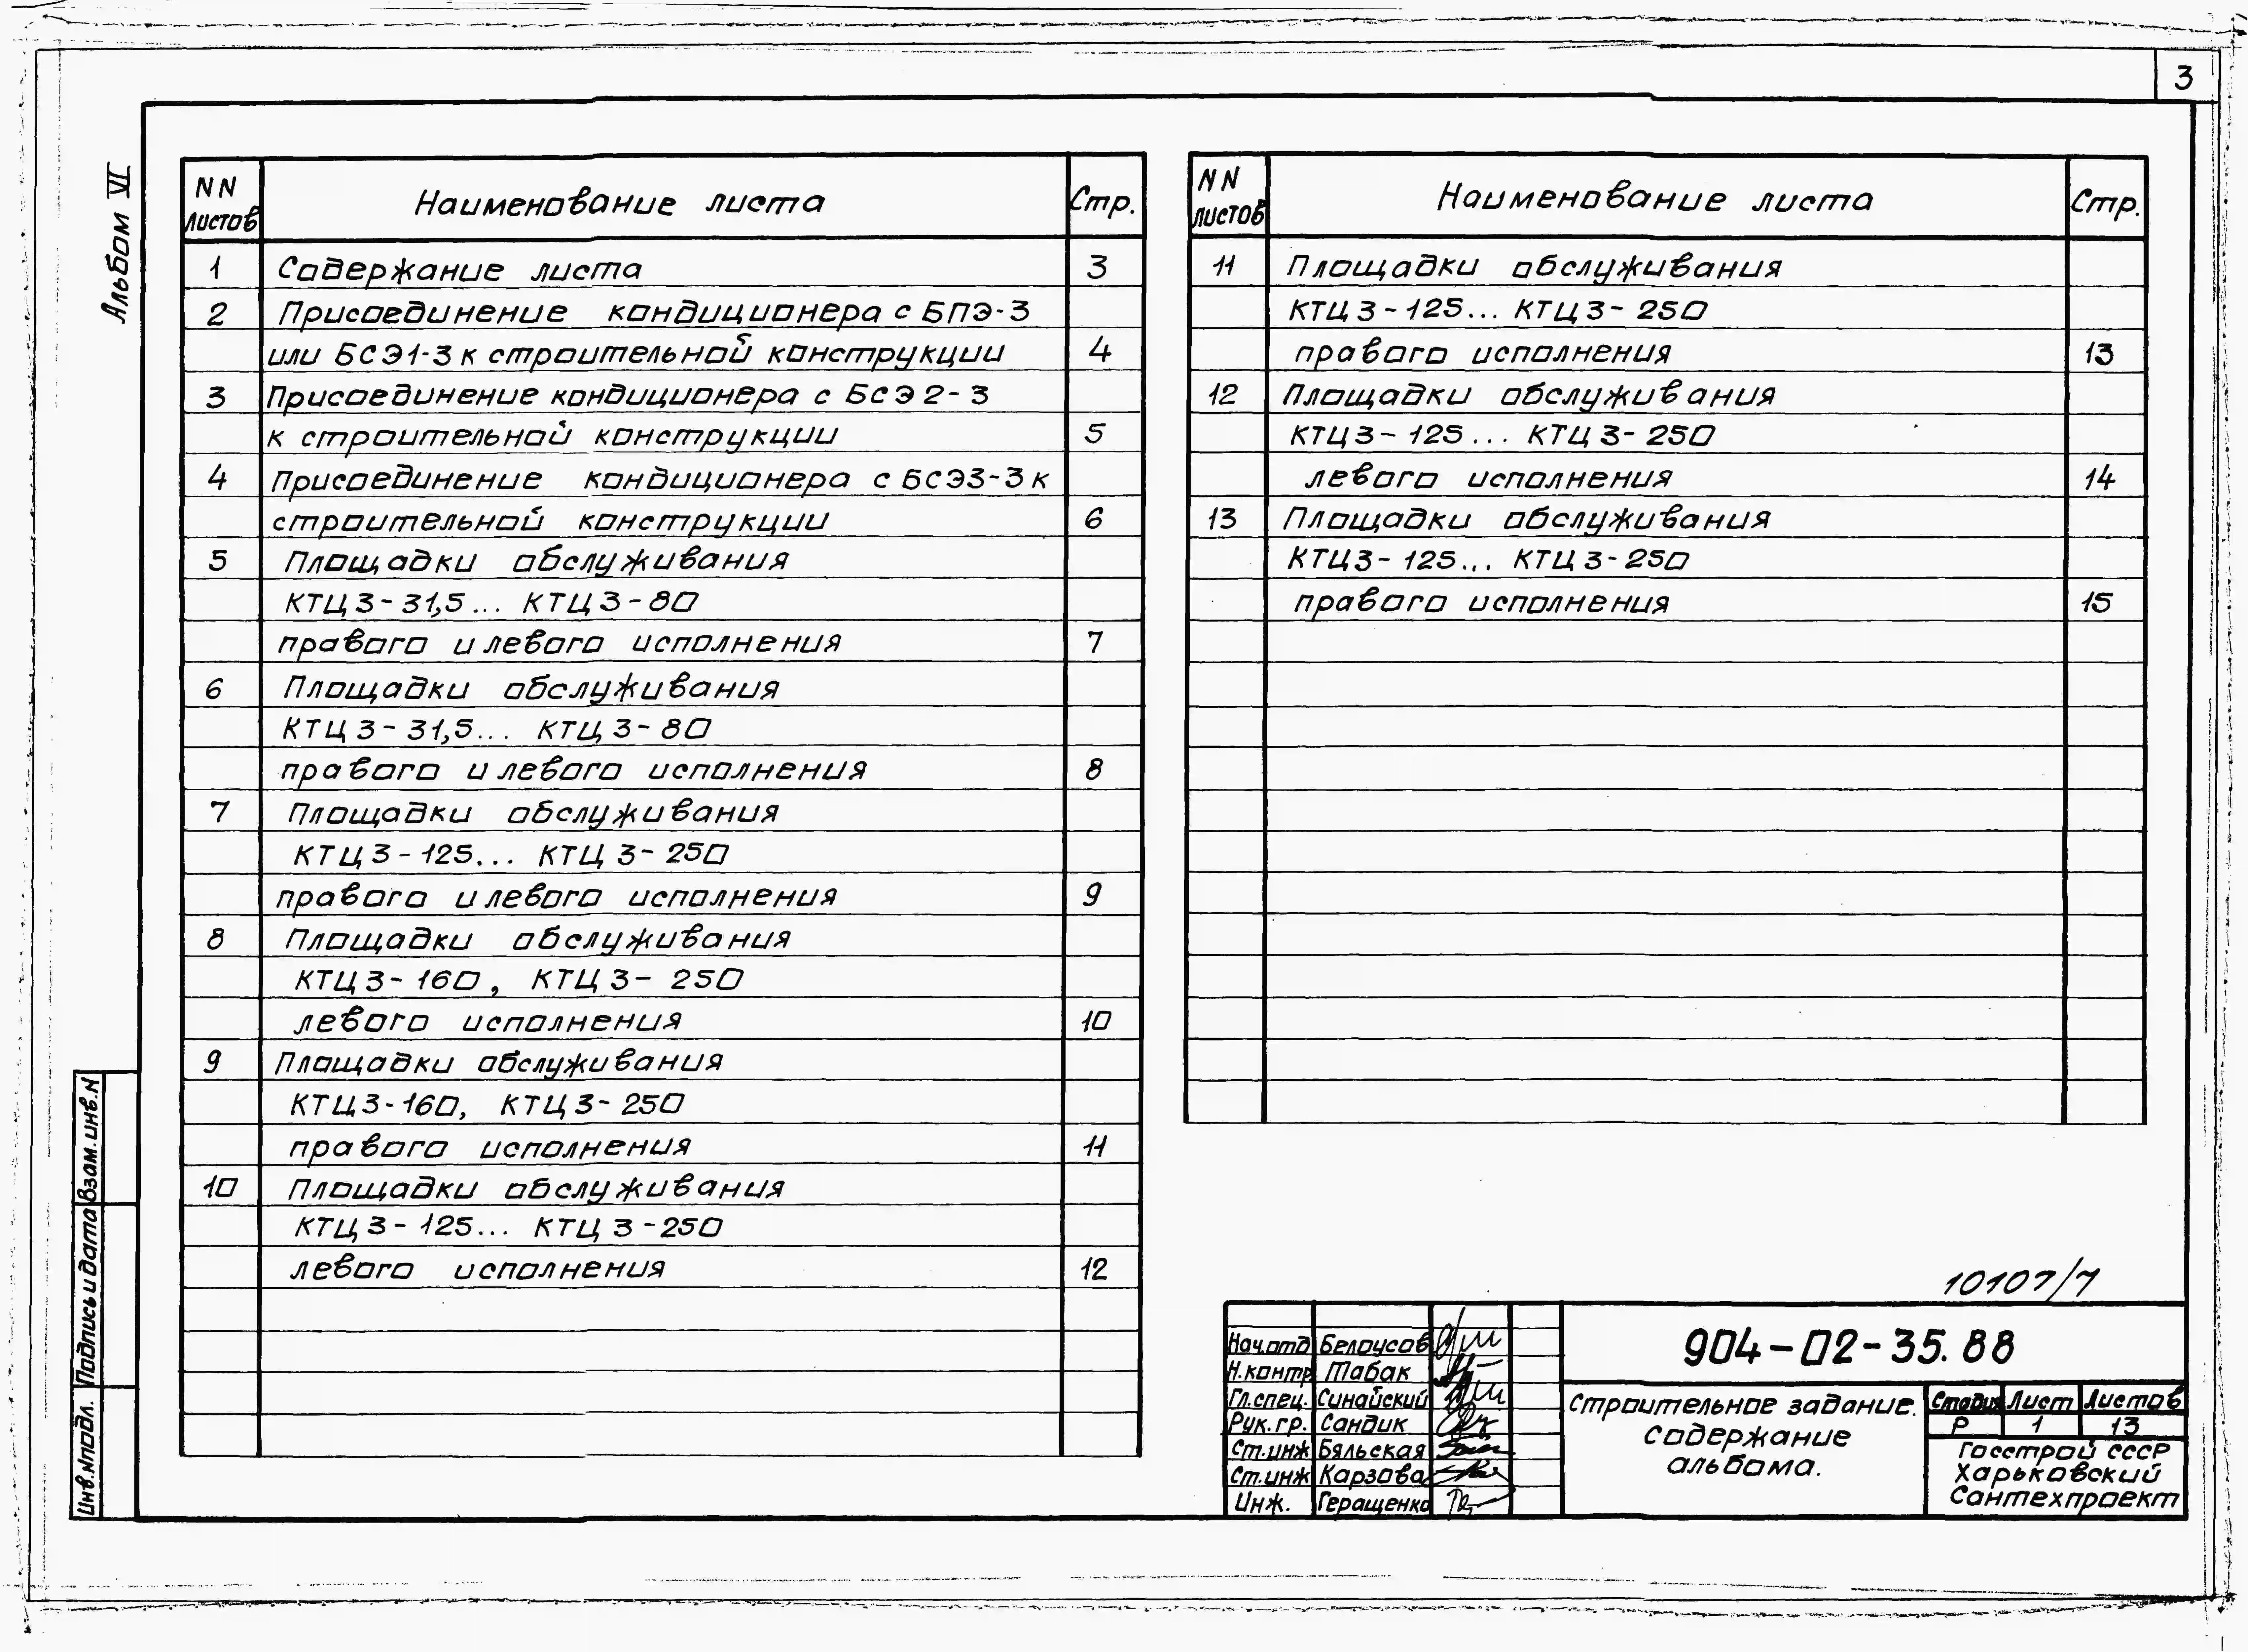 3
Альбом VI
NN листов Наименование листа Стр.
1 Содержание листа 3
2 Присоединение кондиционера с БПЭ-3
или БСЭ1-3 к строительной конструкции 4
3 Присоединение кондиционера с БСЭ2-3
к строительной конструкции 5
4 Присоединение кондиционера с БСЭ3-3 к
строительной конструкции 6
5 Площадки обслуживания
КТЦ3-31,5... КТЦ3-80
правого и левого исполнения 7
6 Площадки обслуживания
КТЦ3-31,5... КТЦ3-80
правого и левого исполнения 8
7 Площадки обслуживания
КТЦ3-125... КТЦ3-250
правого и левого исполнения 9
8 Площадки обслуживания
КТЦ3-160, КТЦ3-250
левого исполнения 10
9 Площадки обслуживания
КТЦ3-160, КТЦ3-250
правого исполнения 11
10 Площадки обслуживания
КТЦ3-125... КТЦ3-250
левого исполнения 12
NN листов Наименование листа Стр.
11 Площадки обслуживания
КТЦ3-125... КТЦ3-250
правого исполнения 13
12 Площадки обслуживания
КТЦ3-125... КТЦ3-250
левого исполнения 14
13 Площадки обслуживания
КТЦ3-125... КТЦ3-250
правого исполнения 15
Взам. инв. N
Подпись и дата
Инв. N подл.
10107/7
Нач.отд Белоусов
Н.контр Табак
Гл.спец. Синайский
Рук.гр. Сандик
Ст.инж Бяльская
Ст.инж Карзова
Инж. Геращенко
904-02-35.88
Строительное задание.
Содержание
альбома.
Стадия Лист Листов
Р 1 13
Госстрой СССР
Харьковский
Сантехпроект